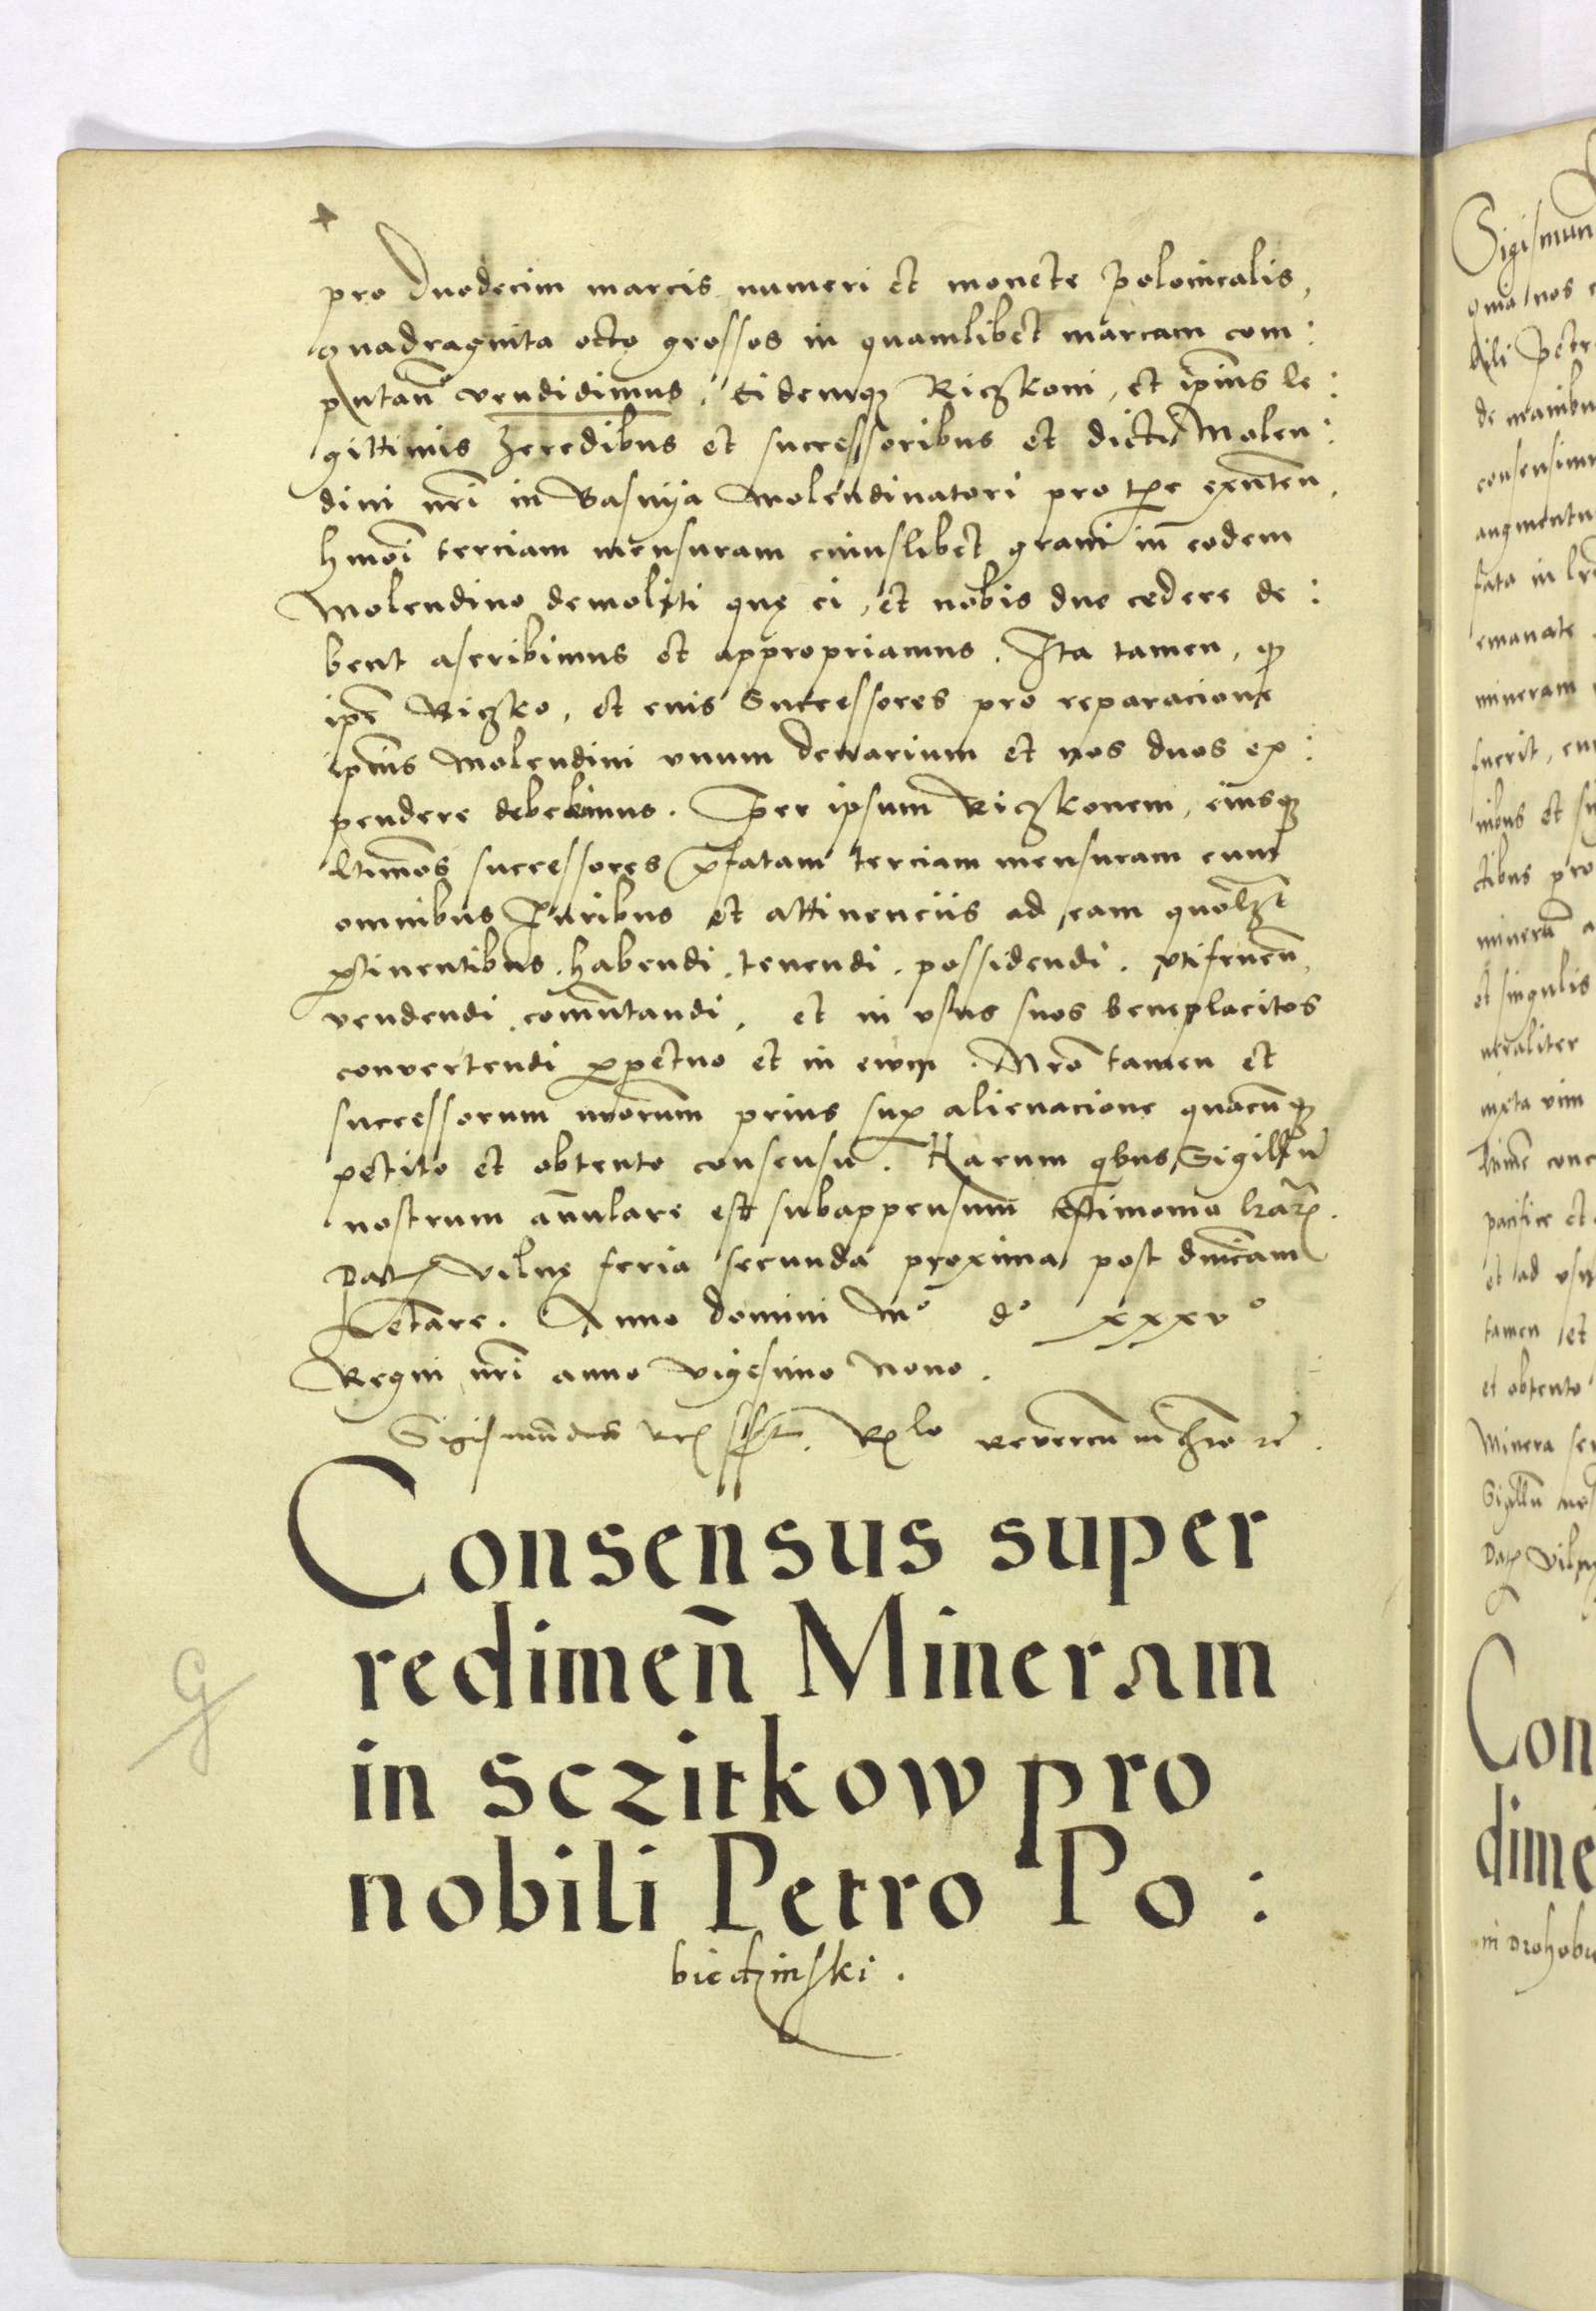 pro duodecim marcis numeri et monete Polonicalis,
quadraginta octo grossos in quamlibet marcam com:
putan̄ vendidimus. Eidemq Riczkoni, et ip̄ius le:
gittimis heredibus et successoribus et dicti Molen:
dini nr̄i in Basnija Molendinatori pro tp̄re exn̄ten,
hmōi terciam mensuram cuiuslibet grani in eodem
Molendino demoliti quę ei, et nobis due cedere de:
bent ascribimus et appropriamus. Ita tamen, q
ip̄e Riczko, et eius Successores pro reparacione
ip̄ius Molendini unum denarium et nos duos ex:
pendere debebimus. Per ipsum Riczkonem, eiusq
ltimōs successores p̄fatam terciam mensuram cum
omnibus Iuribus et attinenciis ad eam quōlzt
ptinentibus. habendi. tenendi. possidendi. utifruen̄,
vendendi. com̄utandi, et in usus suos beneplacitos
convertendi ppetuo et in evum. Nr̄o tamen et
successorum nr̄orum prius sup alienacione quacun̄q
petito et obtento consensu. Harum qbus Sigillū
nostrum an̄ulare est subappensum testimonio lr̄ar.
Dat Vilnę feria secunda proxima post dn̄icam
Letare. Anno domini Mº dº xxxvº
Regni nr̄i anno vigesimo nono.
Sigismūdus Rex sst. Rlo
Consensus super
redimen̄ Mineram
in Sczitkow pro
nobili Petro Po:
biedzinski.
G
Sigismun
quia nos
bili Petr
de manibu
consensim
augmentu
fata in lr̄
emanate
mineram
fuerit, cu
nibus et su
ctibus pro
minerā a
et singulis
neraliter
iuxta vim
pacifice et
et ad usu
tamen et
et obtento
Minera se
Sigillū no
Dat Viln
Con
dime
in Drohobic